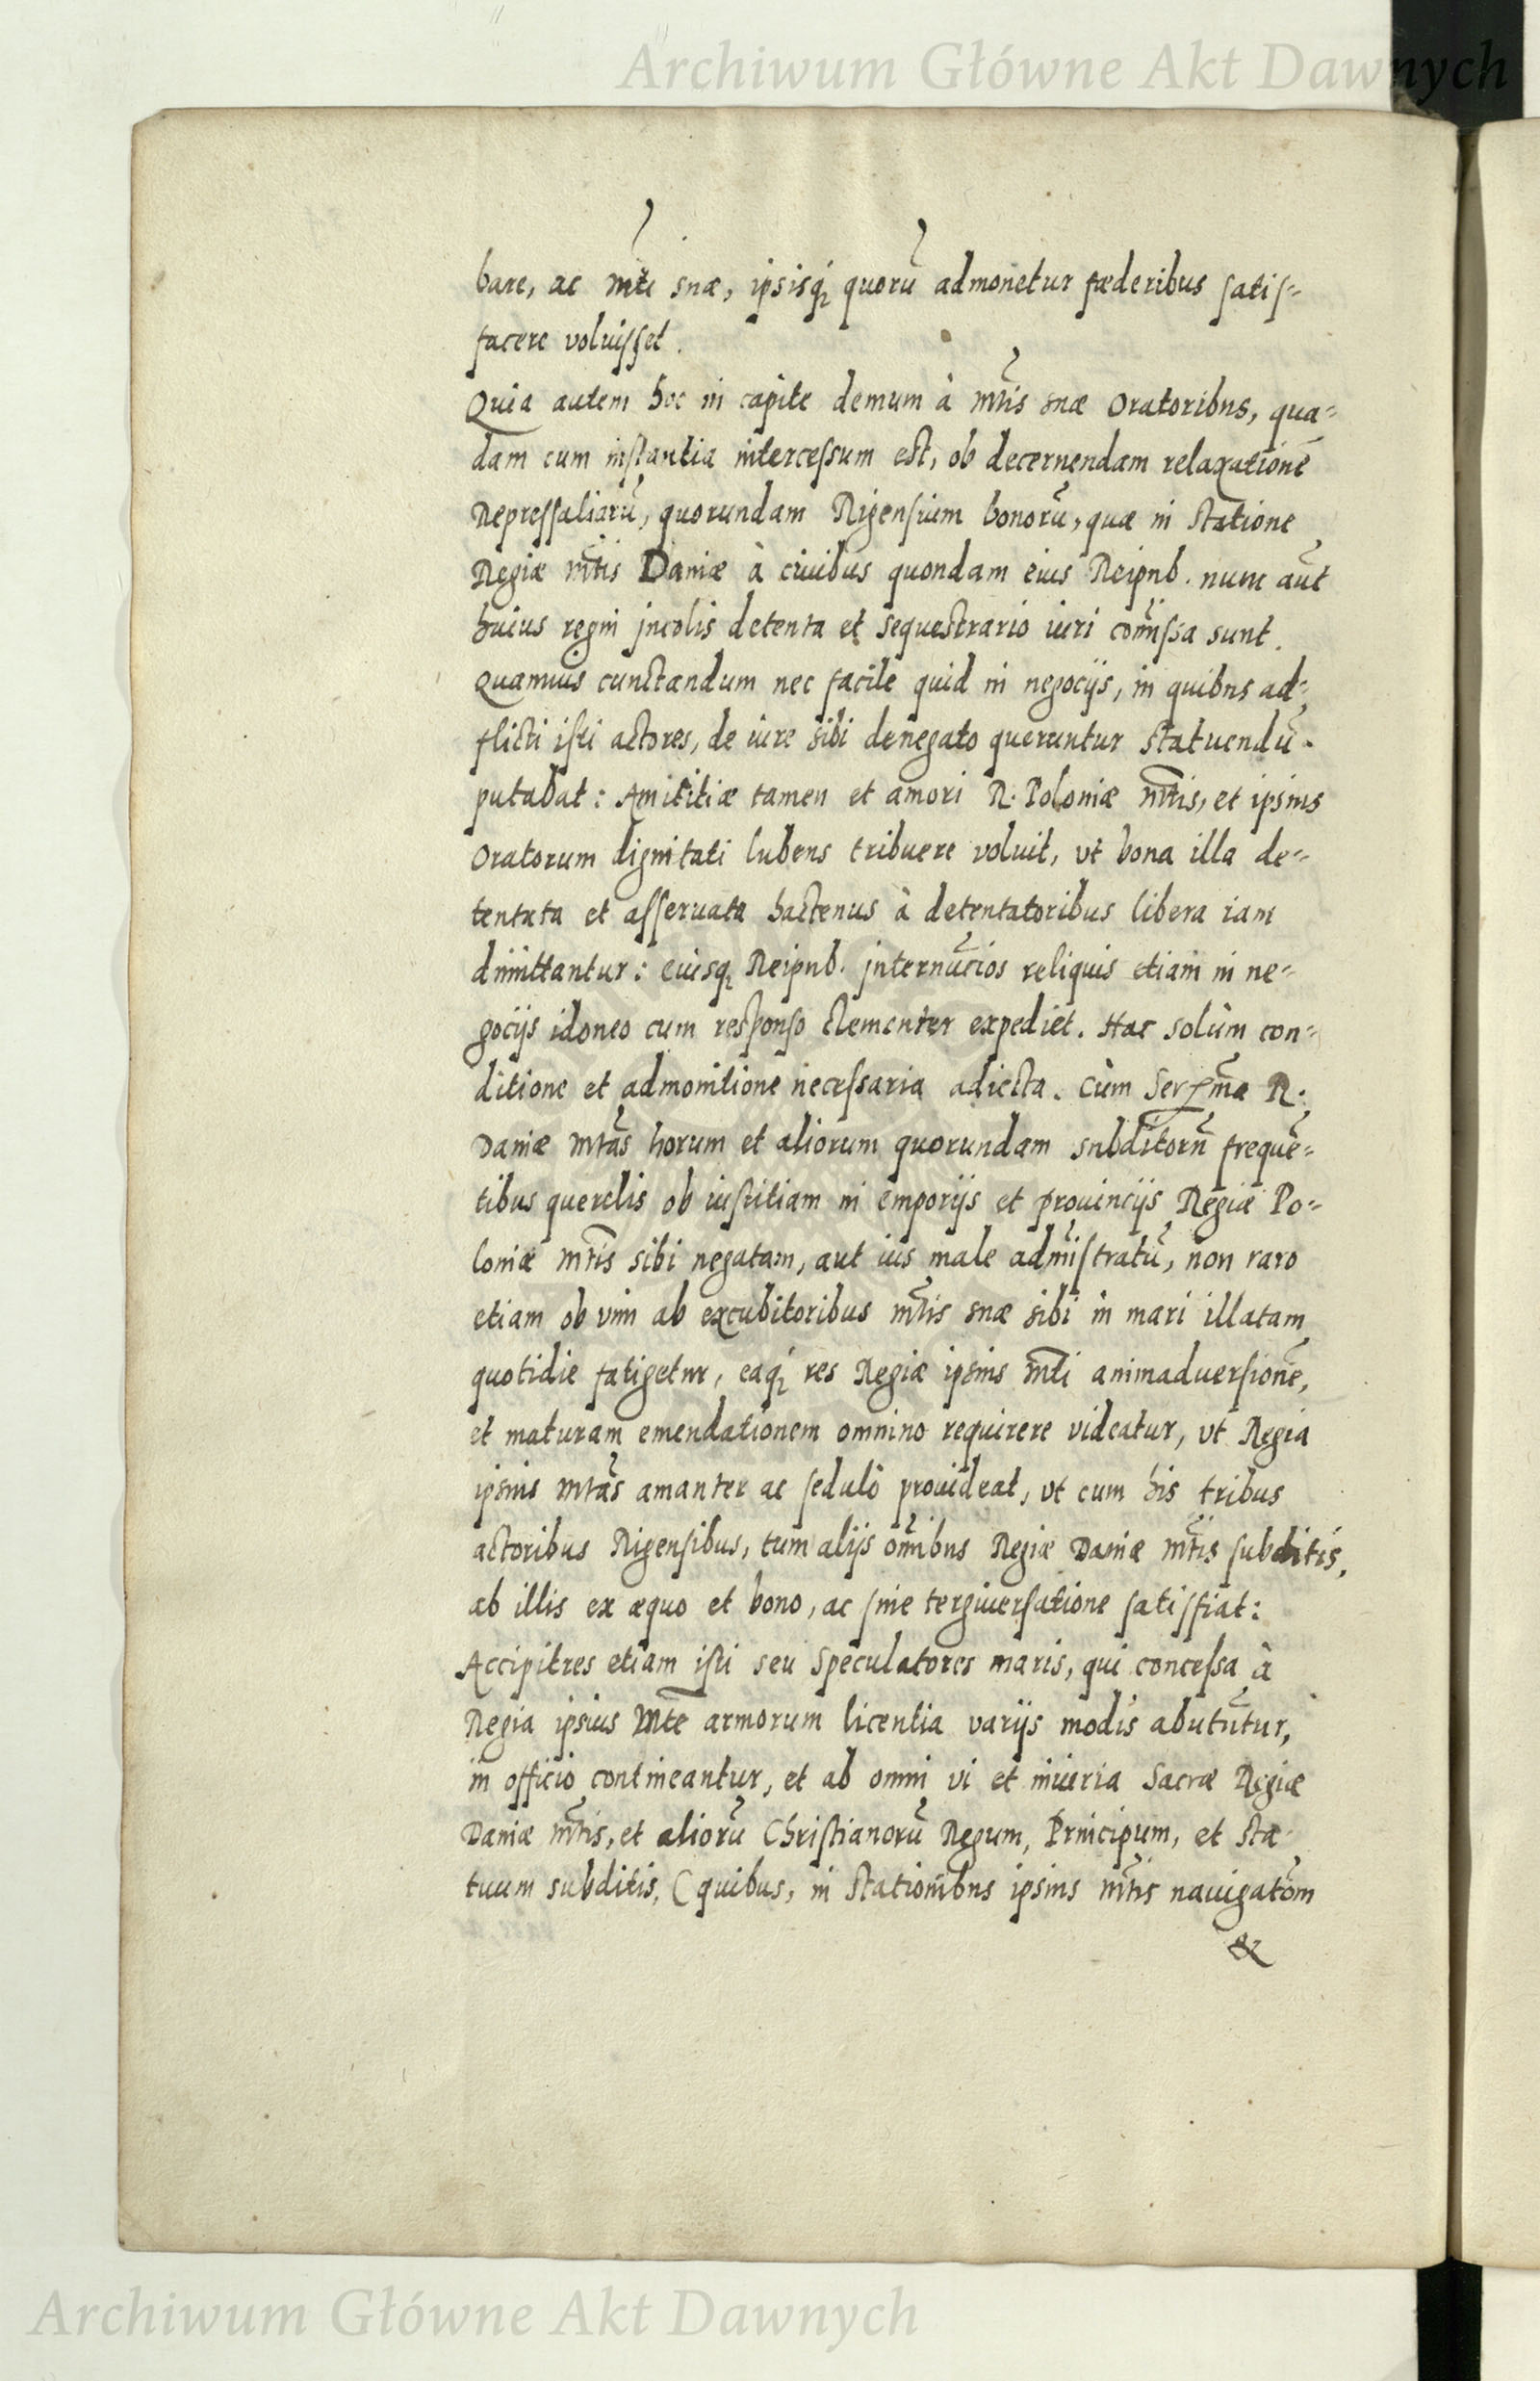 Archiwum Główne Akt Dawnych
bare, ac Mti suæ, ipsisq́ꝫ quorũ admonetur fæderibus satis=
facere voluisset.
Quia autem hoc in capite demum à Mtis suæ Oratoribus, qua=
dam cum instantia intercessum est, ob decernendam relaxationẽ
Repressaliarũ, quorundam Rigensium bonorũ, quæ in statione
Regiæ Mtis Daniæ à ciuibus quondam eius Reipub. nunc aũt
huius regni jncolis detenta et sequestrario iuri com̃issa sunt.
Quamuis cunctandum nec facile quid in negocijs, in quibus ad=
flicti isti actores, de iure sibi denegato queruntur statuendũ.
putabat: Amicitiæ tamen et amori R. Poloniæ Mtis, et ipsius
Oratorum dignitati lubens tribuere voluit, vt bona illa de=
tentata et asseruata hactenus à detentatoribus libera iam
dimittantur: eiusqꝫ Reipub. jnternũcios reliquis etiam in ne=
gocijs idoneo cum responso clementer expediet. Hac solùm con=
ditione et admonitione necessaria adiecta. Cùm Serᵐᵃ R.
Daniæ Mtas horum et aliorum quorundam subditorũ frequẽ=
tibus querelis ob iustitiam in emporijs et prouincijs Regiæ Po=
loniæ Mtis sibi negatam, aut ius male admĩstratũ, non raro
etiam ob vim ab excubitoribus Mtis suæ sibi in mari illatam
quotidie fatigetur, eaq́ꝫ res Regiæ ipsius Mti animaduersionẽ,
et maturam emendationem omnino requirere videatur, vt Regia
ipsius Mtas amanter ac sedulò prouideat, vt cum his tribus
actoribus Rigensibus, tum alijs om̃ibus Regiæ Daniæ Mtis subditis,
ab illis ex æquo et bono, ac sine tergiuersatione satisfiat:
Accipitres etiam isti seu Speculatores maris, qui concessa à
Regia ipsius Mte armorum licentia varijs modis abutũtur,
in officio contineantur, et ab omni vi et iniuria Sacræ Regiæ
Daniæ Mtis, et aliorũ Christianorũ Regum, Principum, et sta=
tuum subditis, (quibus, in stationibus ipsius Mtis nauigatõm
&
Archiwum Główne Akt Dawnych